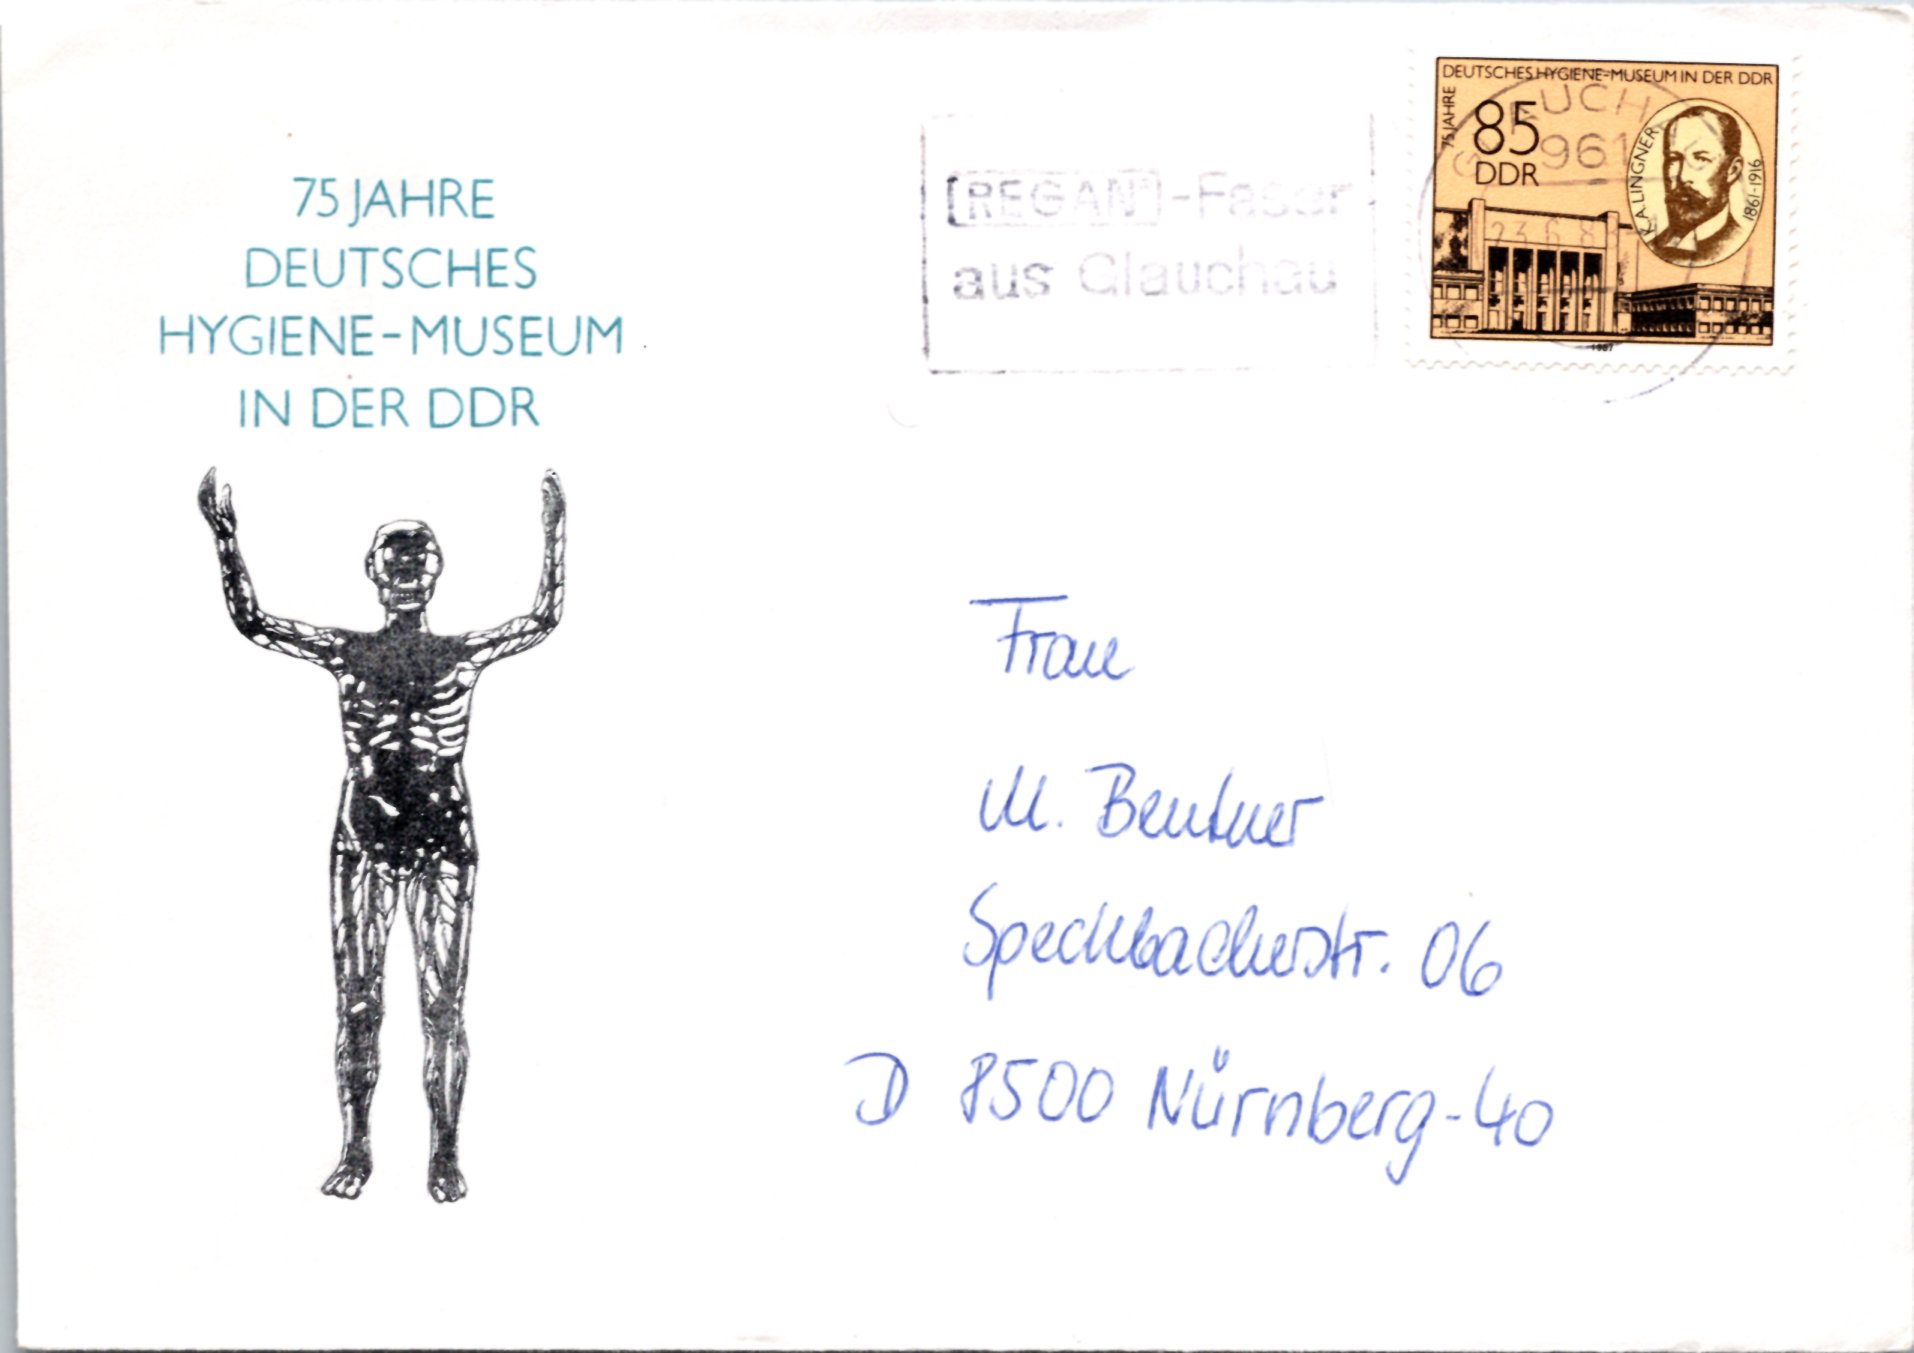 75 JAHRE
DEUTSCHES
HYGIENE-MUSEUM
IN DER DDR
[REGAN]-Faser
aus Glauchau
DEUTSCHES HYGIENE-MUSEUM IN DER DDR
75 JAHRE
85
DDR
K.A. LINGNER
1861-1916
1987
UCH
961
23.6.8
Frau
M. Bentner
Speckbacherstr. 06
D 8500 Nürnberg-40